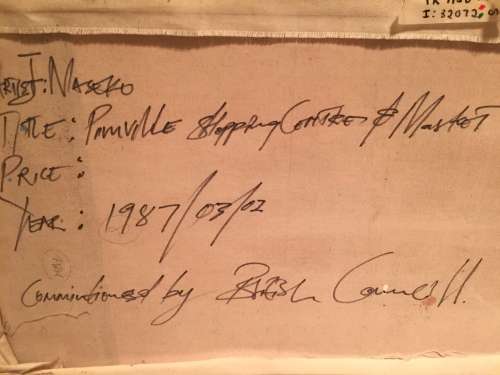 I: 32072
Artist: J. Maseko
Title: Pimville Shopping Centre & Market
Price:
Year: 1987/03/02
Commissioned by British Council.